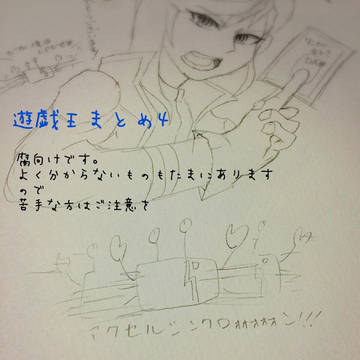 遊戯王まとめ4
腐向けです。
よく分からないものもたまにあります
ので
苦手な方はご注意を
アクセルシンクロォォォォン!!!